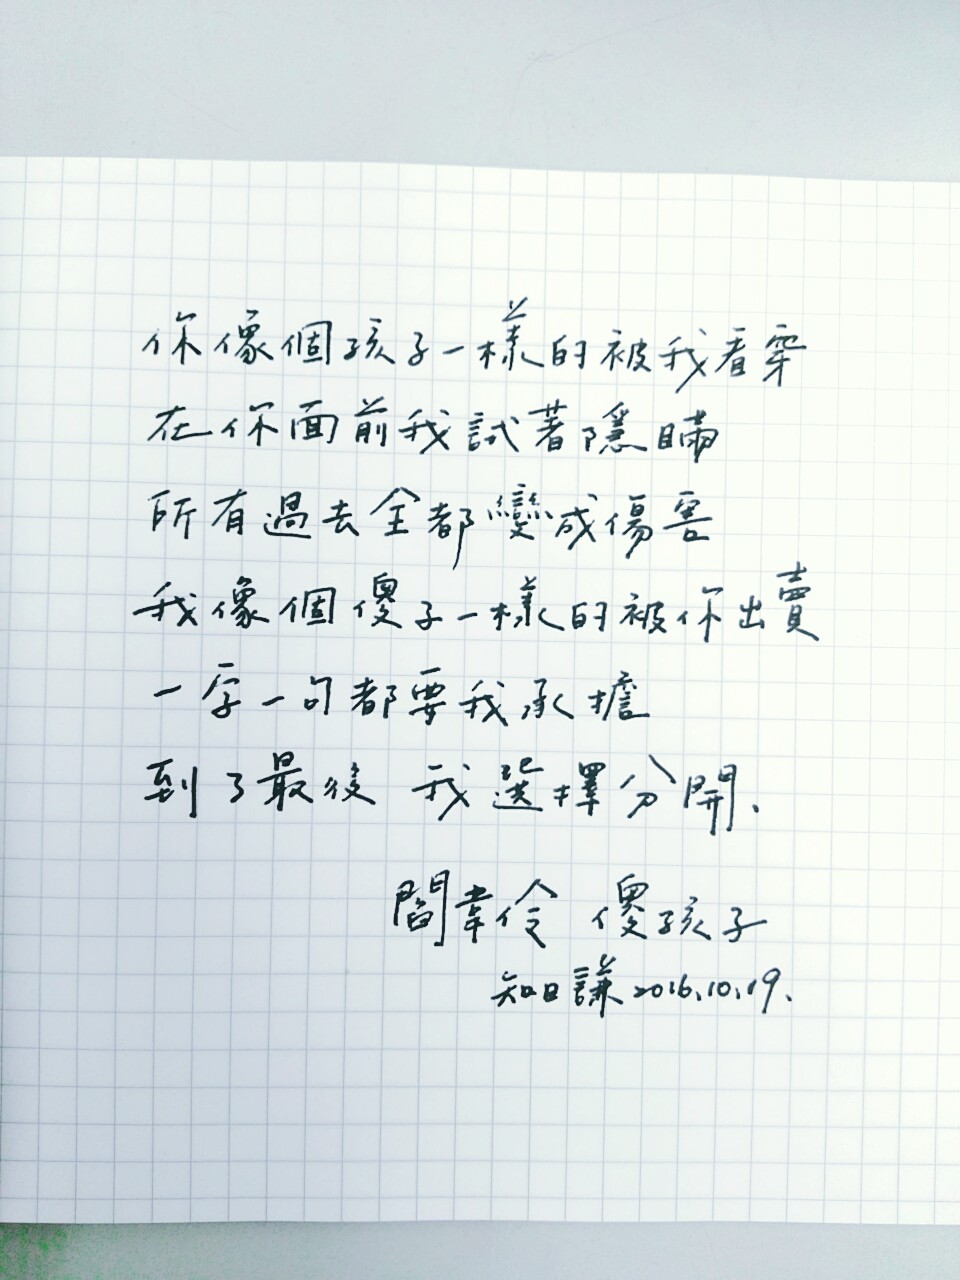 你像個孩子一樣的被我看穿
在你面前我試著隱瞞
所有過去全都變成傷害
我像個傻子一樣的被你出賣
一字一句都要我承擔
到了最後 我選擇分開、
閻韋伶 傻孩子
知日謙 2016.10.19.